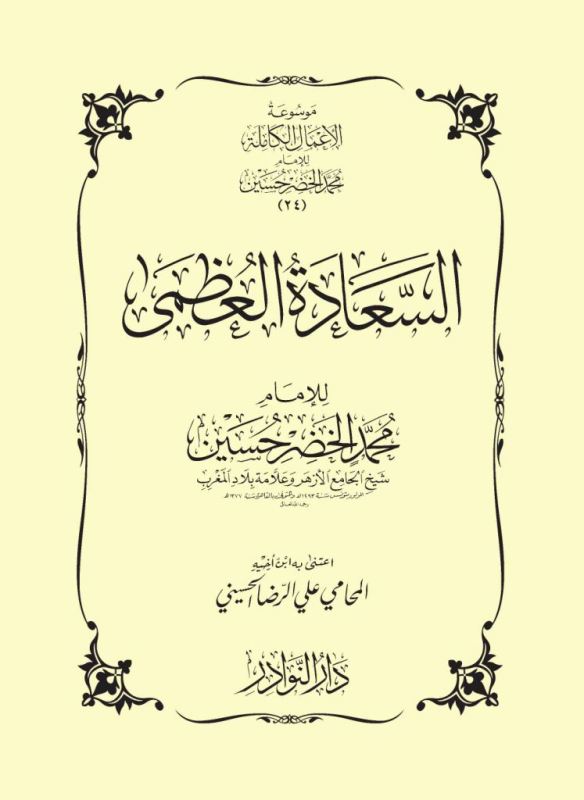 مَوسُوعَةُ
الأَعْمَالِ الكَامِلَة
لِلإِمَامِ
مُحَمَّد الخَضِر حُسَيْن
(٢٤)
السَّعَادَةُ العُظْمَى
لِلإِمَامِ
مُحَمَّد الخَضِر حُسَيْن
شَيْخِ الجَامِعِ الأَزْهَرِ وَعَلَّامَةِ بِلَادِ المَغْرِبِ
اعتَنى به ابنُ أخيهِ
المحامي علي الرّضا الحسيني
دَارُ النَّوَادِرِ